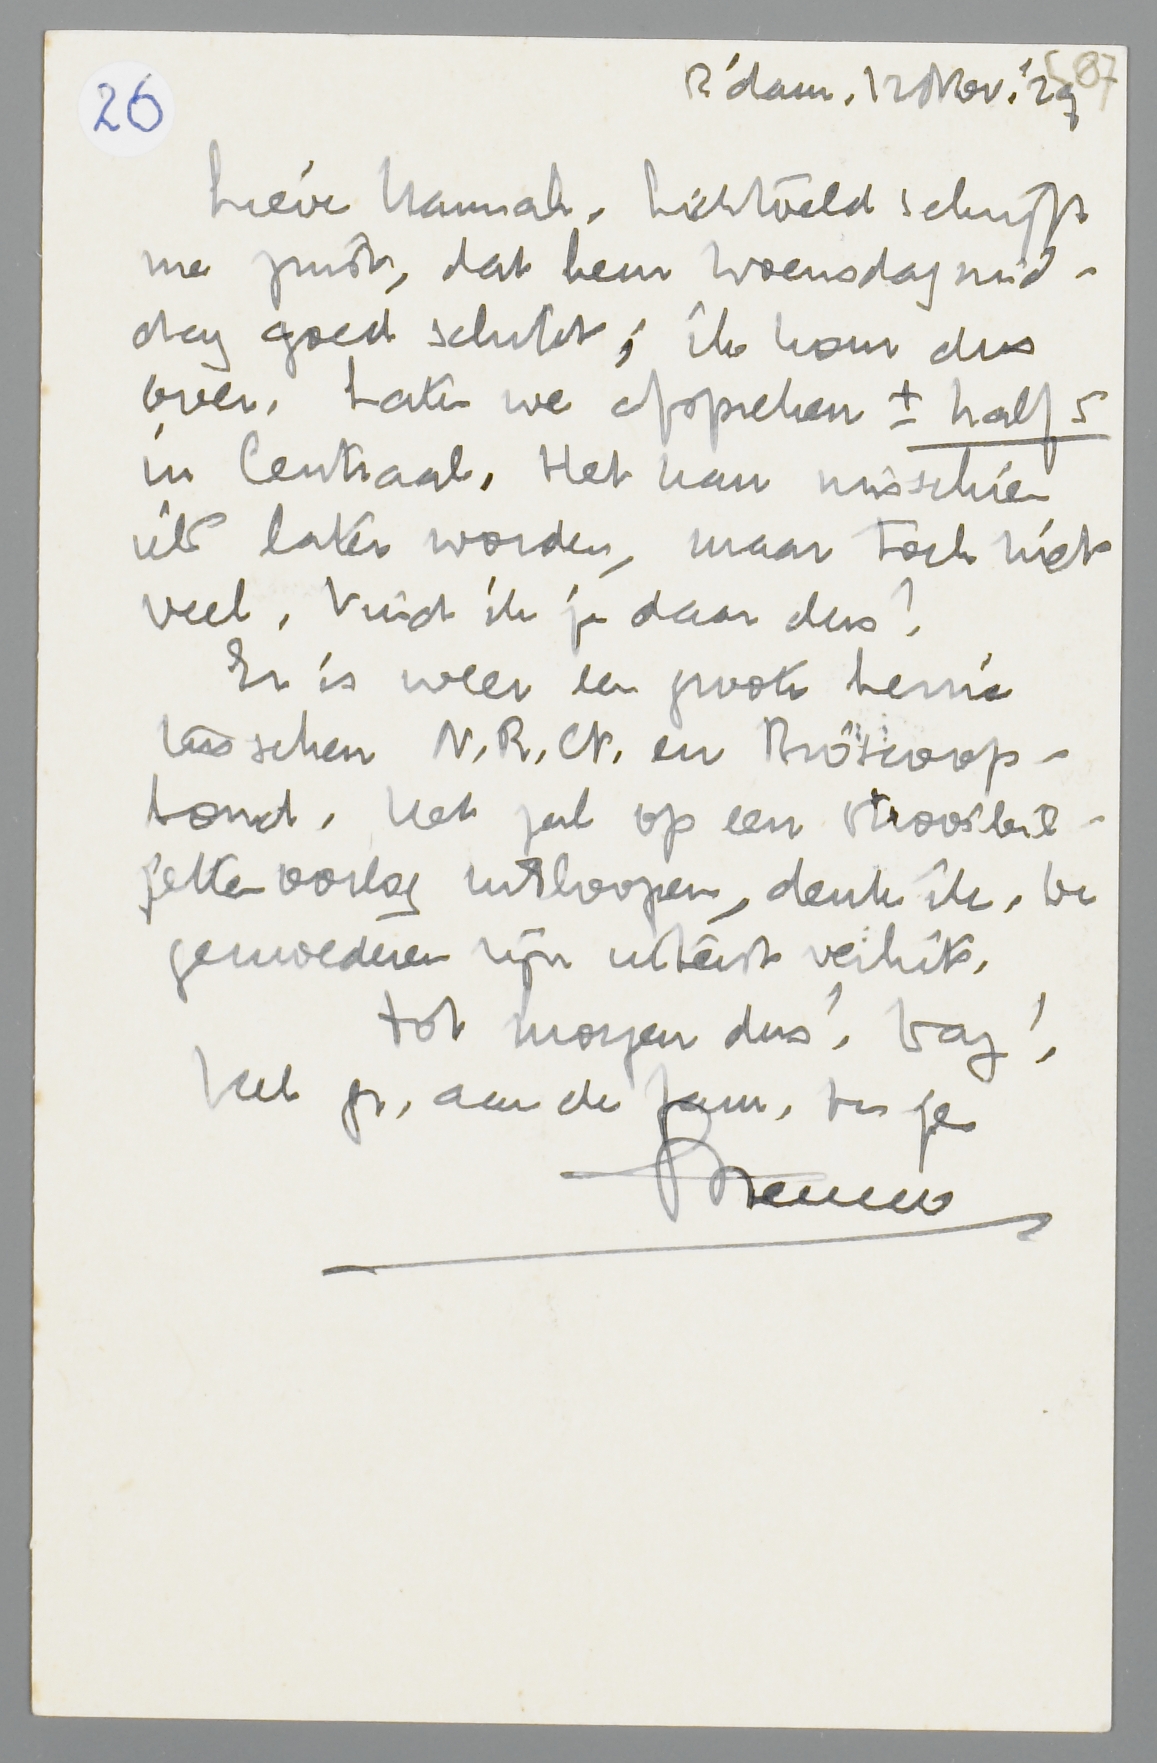 26
587
R'dam, 12 Nov. '29
Lieve Hannah, Lichtveld schrijft
me juist, dat hem Woensdagmid-
dag goed schikt; ik kom dus
over. Laten we afspreken ± half 5
in Centraal. Het kan misschien
iets later worden, maar toch niet
veel. Vind ik je daar dus?
Er is weer een groote herrie
tusschen N.R.Ct. en Bioscoop-
bond. Het zal op een strooibil-
jettenoorlog uitloopen, denk ik. De
gemoederen zijn uiterst verhit.
Tot morgen dus! Dag!
Veel gr. aan de fam. en je
Menno